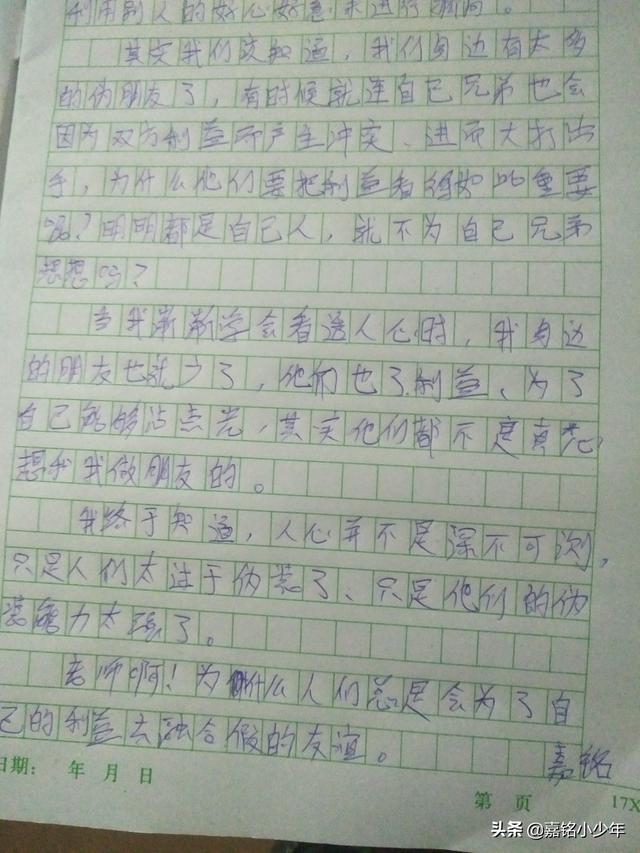 利用别人的好心好意来进行
其实我们该知道，我们身边有太多
的伪朋友了，有时候就连自已兄弟也会
因为双方利益而产生冲突、进而大打出
手，为什么他们要把利益看得如此重要
呢？明明都是自己人，就不为自己兄弟
想想吗？
当我渐渐学会看透人心时，我身边
的朋友也就少了，他们也了利益、为了
自己能够沾点光，其实他们都不是真心
想和我做朋友的。
我终于知道，人心并不是深不可测，
只是人们太过于伪装了、只是他们的伪
装能力太强了。
老师啊！为什么人们总是会为了自
己的利益去融合假的友谊。
嘉铭
日期： 年 月 日
第 页 17X
头条 @嘉铭小少年